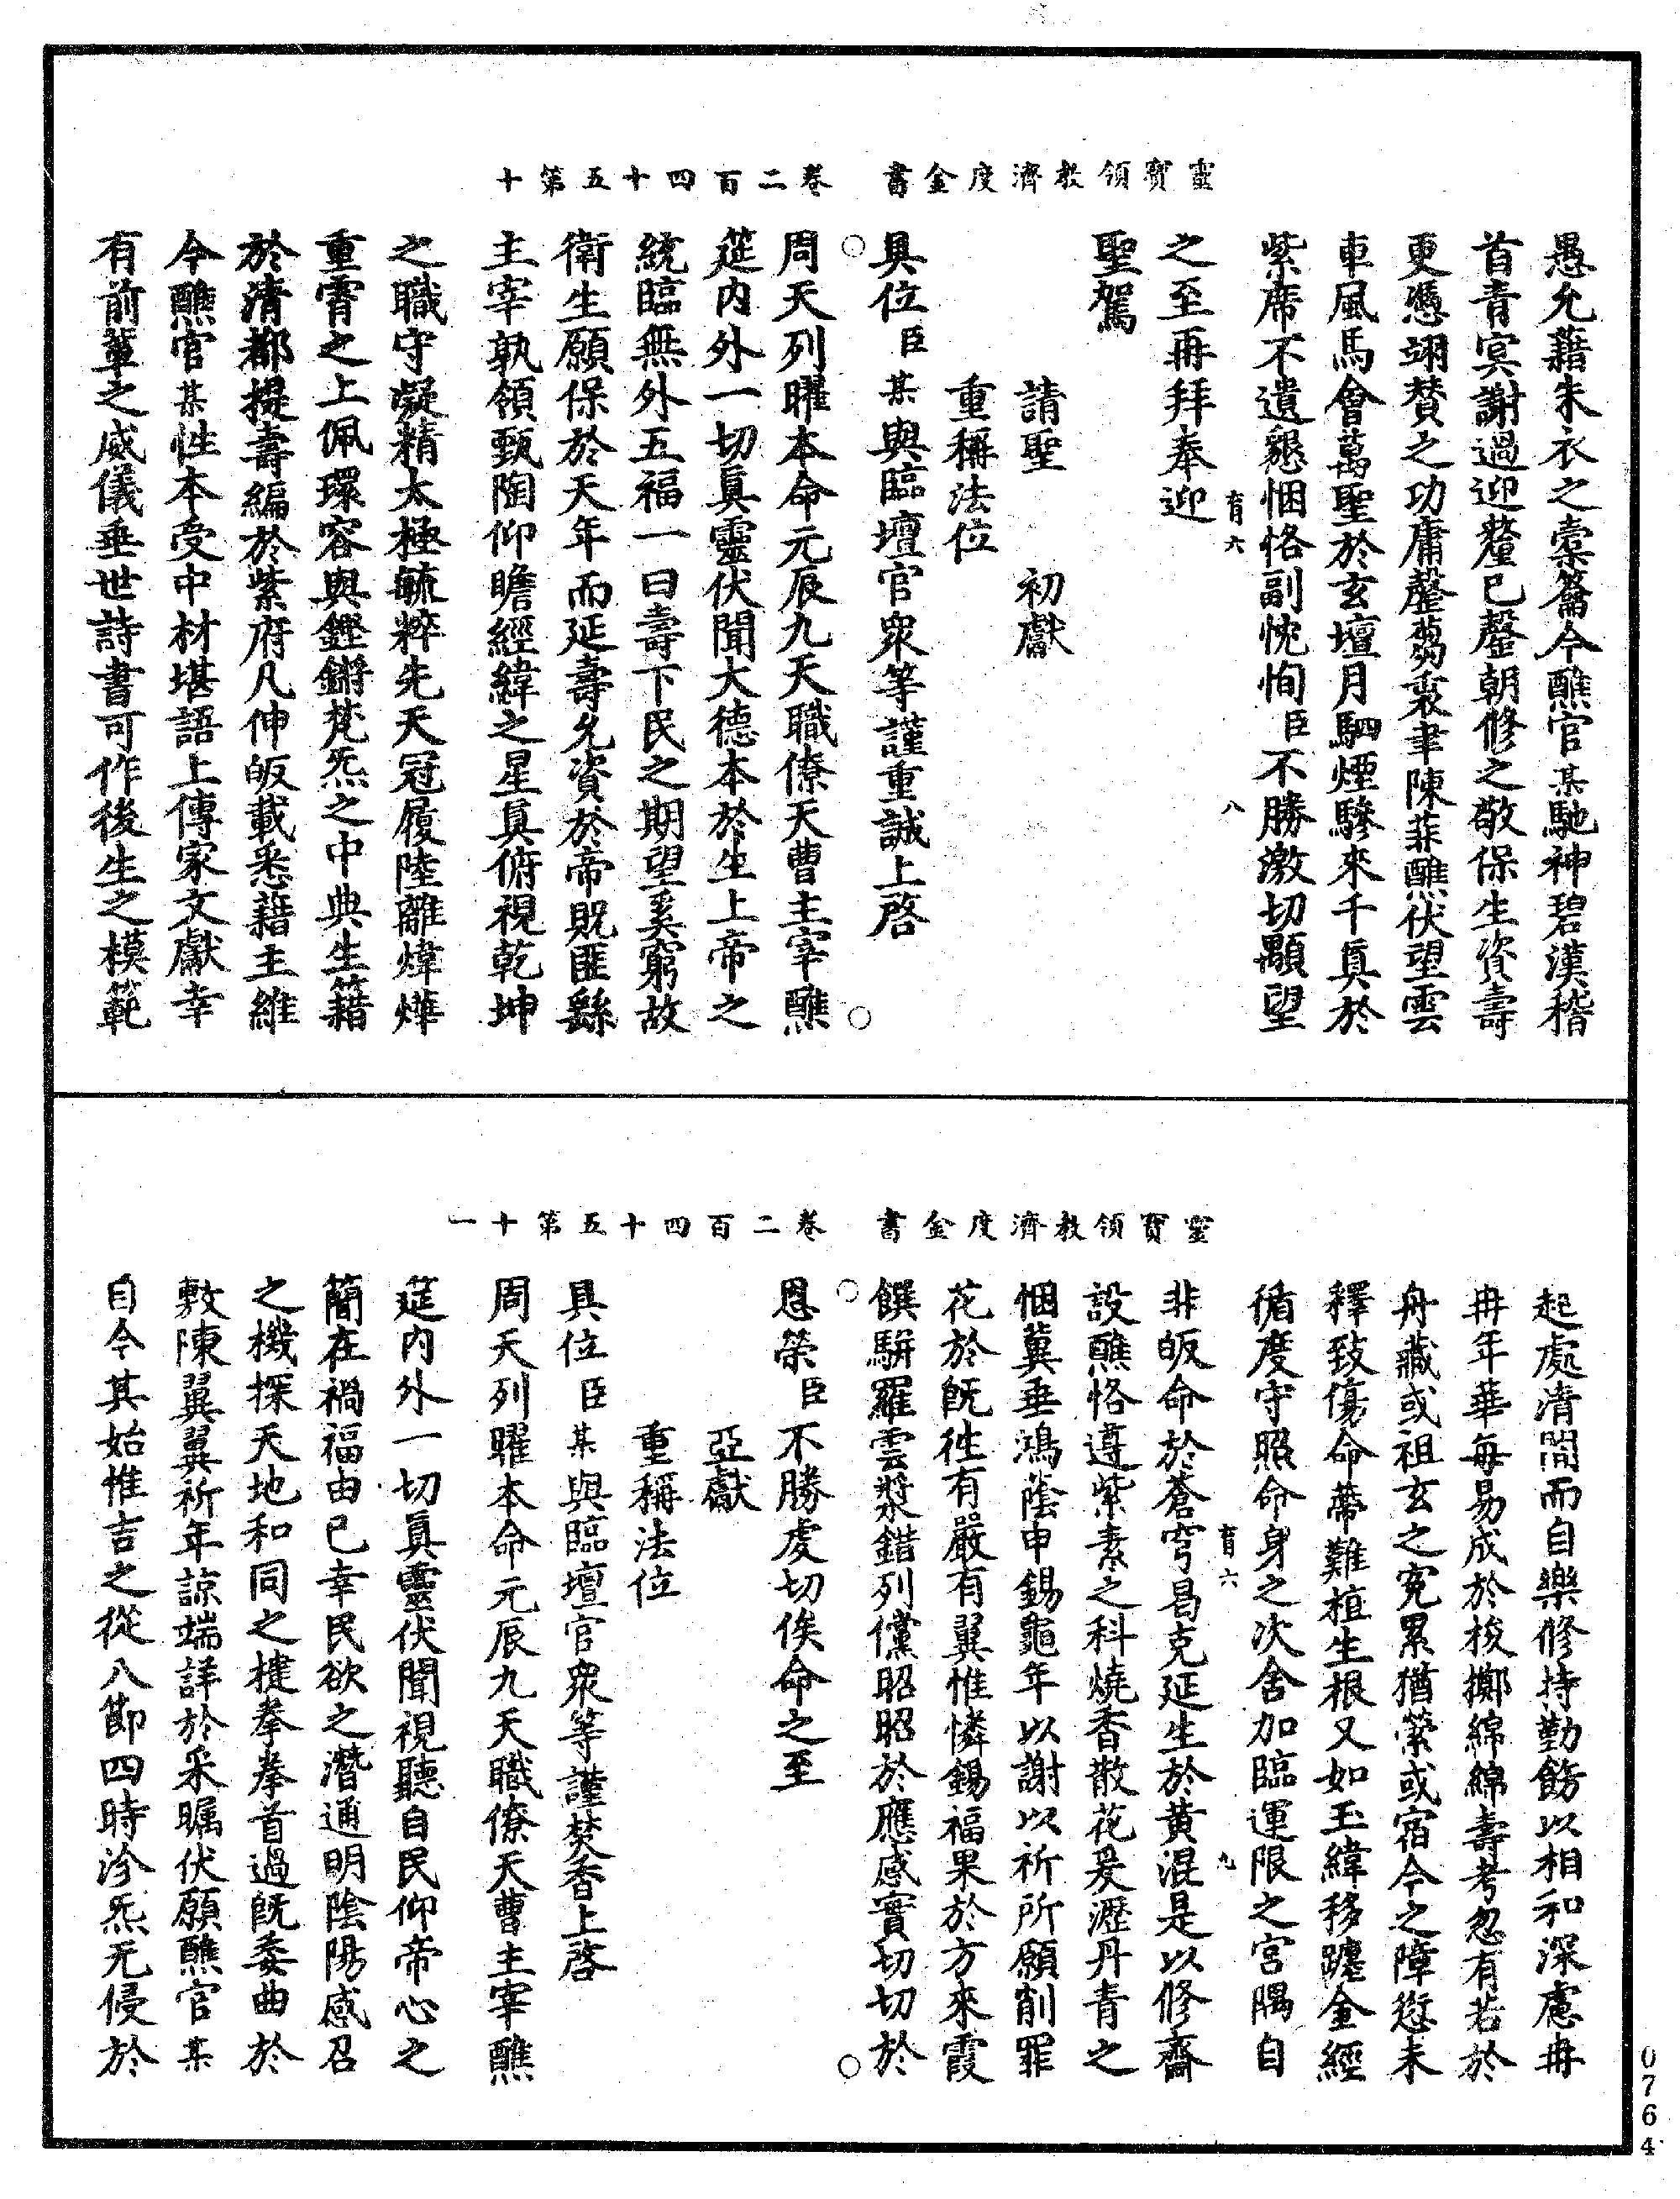 靈寶領教濟度金書　卷二百四十五第十
愚允藉朱衣之橐籥今醮官某馳神碧漢稽
首青冥謝過迎釐已罄朝修之敬保生資壽
更憑翊贊之功庸罄蒭衷聿陳菲醮伏望雲
車風馬會萬聖於玄壇月駟煙驂來千眞於
紫席不遺懇悃恪副忱恂臣不勝激切顒望
育六　八
之至再拜奉迎
聖駕
請聖　初獻
重稱法位
具位臣某與臨壇官衆等謹重誠上啓
周天列曜本命元辰九天職僚天曹主宰醮
筵內外一切眞靈伏聞大德本於生上帝之
統臨無外五福一曰壽下民之期望奚窮故
衛生願保於天年而延壽允資於帝貺匪繇
主宰孰領甄陶仰瞻經緯之星眞俯視乾坤
之職守凝精太極毓粹先天冠履陸離煒燁
重霄之上佩環容與鏗鏘梵炁之中典生籍
於清都提壽編於紫府凡伸皈載悉藉主維
今醮官某性本受中材堪語上傳家文獻幸
有前輩之威儀垂世詩書可作後生之模範
靈寶領教濟度金書　卷二百四十五第十一
起處清閒而自樂修持勤飭以相和深慮冉
冉年華每易成於梭擲綿綿壽考忽有若於
舟藏或祖玄之寃累猶縈或宿今之障愆未
釋致傷命蔕難植生根又如玉緯移躔金經
循度守照命身之次舍加臨運限之宮隅自
育六　九
非皈命於蒼穹曷克延生於黃混是以修齋
設醮恪遵紫素之科燒香散花爰瀝丹青之
悃冀垂鴻蔭申錫龜年以謝以祈所願削罪
花於旣徃有嚴有翼惟憐錫福果於方來霞
饌駢羅雲漿錯列儻昭昭於應感實切切於
恩榮臣不勝虔切俟命之至
亞獻
重稱法位
具位臣某與臨壇官衆等謹焚香上啓
周天列曜本命元辰九天職僚天曹主宰醮
筵內外一切眞靈伏聞視聽自民仰帝心之
簡在禍福由已幸民欲之潛通明陰陽感召
之機探天地和同之揵拳拳首過旣委曲於
敷陳翼翼祈年諒端詳於采矚伏願醮官某
自今其始惟吉之從八節四時沴炁无侵於
0764